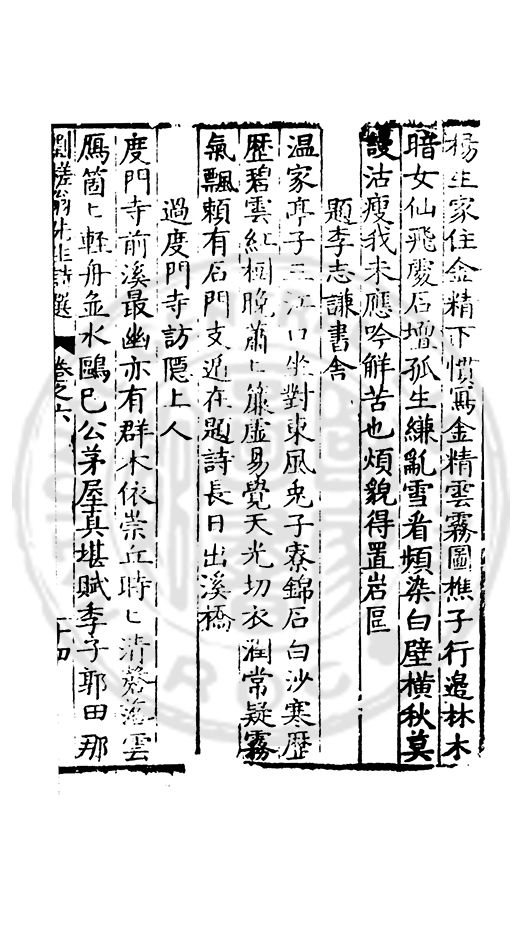 楊生家住金精下慣寫金精雲霧圖樵子行邊林木
暗女仙飛處石壇孤生縑亂雪看頻染白壁橫秋莫
謾沽瘦我未應吟觧苦也煩貌得置岩區
題李志謙書舍
温家亭子三江口坐對東風兎子寮錦石白沙寒歷
歷碧雲紅樹晚蕭〻簾虛易覺天光切衣潤常疑霧
氣飄頼有石門支遁在題詩長日出溪橋
過度門寺訪隱上人
度門寺前溪最幽亦有群木依崇丘時〻清磬落雲
鴈箇〻輕舟並水鷗巳公茅屋真堪賦季子郭田那
劉槎翁先生詩選 卷之六 十四